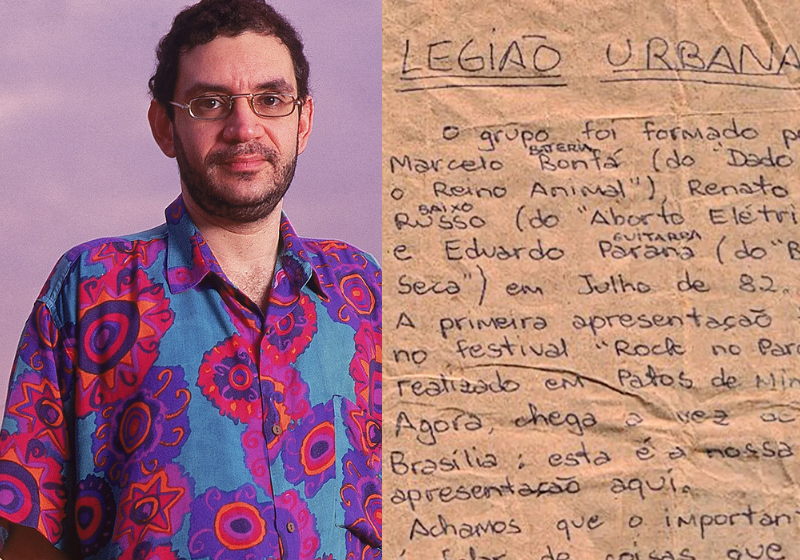 LEGIÃO URBANA
O grupo foi formado p
BATERIA
Marcelo Bonfá (do "Dado
o Reino Animal"), Renato
BAIXO
RUSSO (do "Aborto Elétri
GUITARRA
e Eduardo Paraná (do "B
Seca") em Julho de 82.
A primeira apresentação
no festival "Rock no Par
realizado em Patos de Min
Agora, chega a vez
Brasília; esta é a nossa
apresentação aqui.
Achamos que o important
falar de coisas que